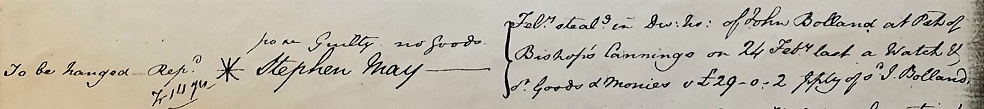 Guilty no Goods
To be hanged Rep.d * Stephen May
Tr 14 yrs
Fel.y steal.g in Dw: ho: of John Bolland at Psh of
Bishop's Cannings on 24 Feb.y last a Watch &
Goods & Monies £29-0-2 Pply of s.d J. Bolland.